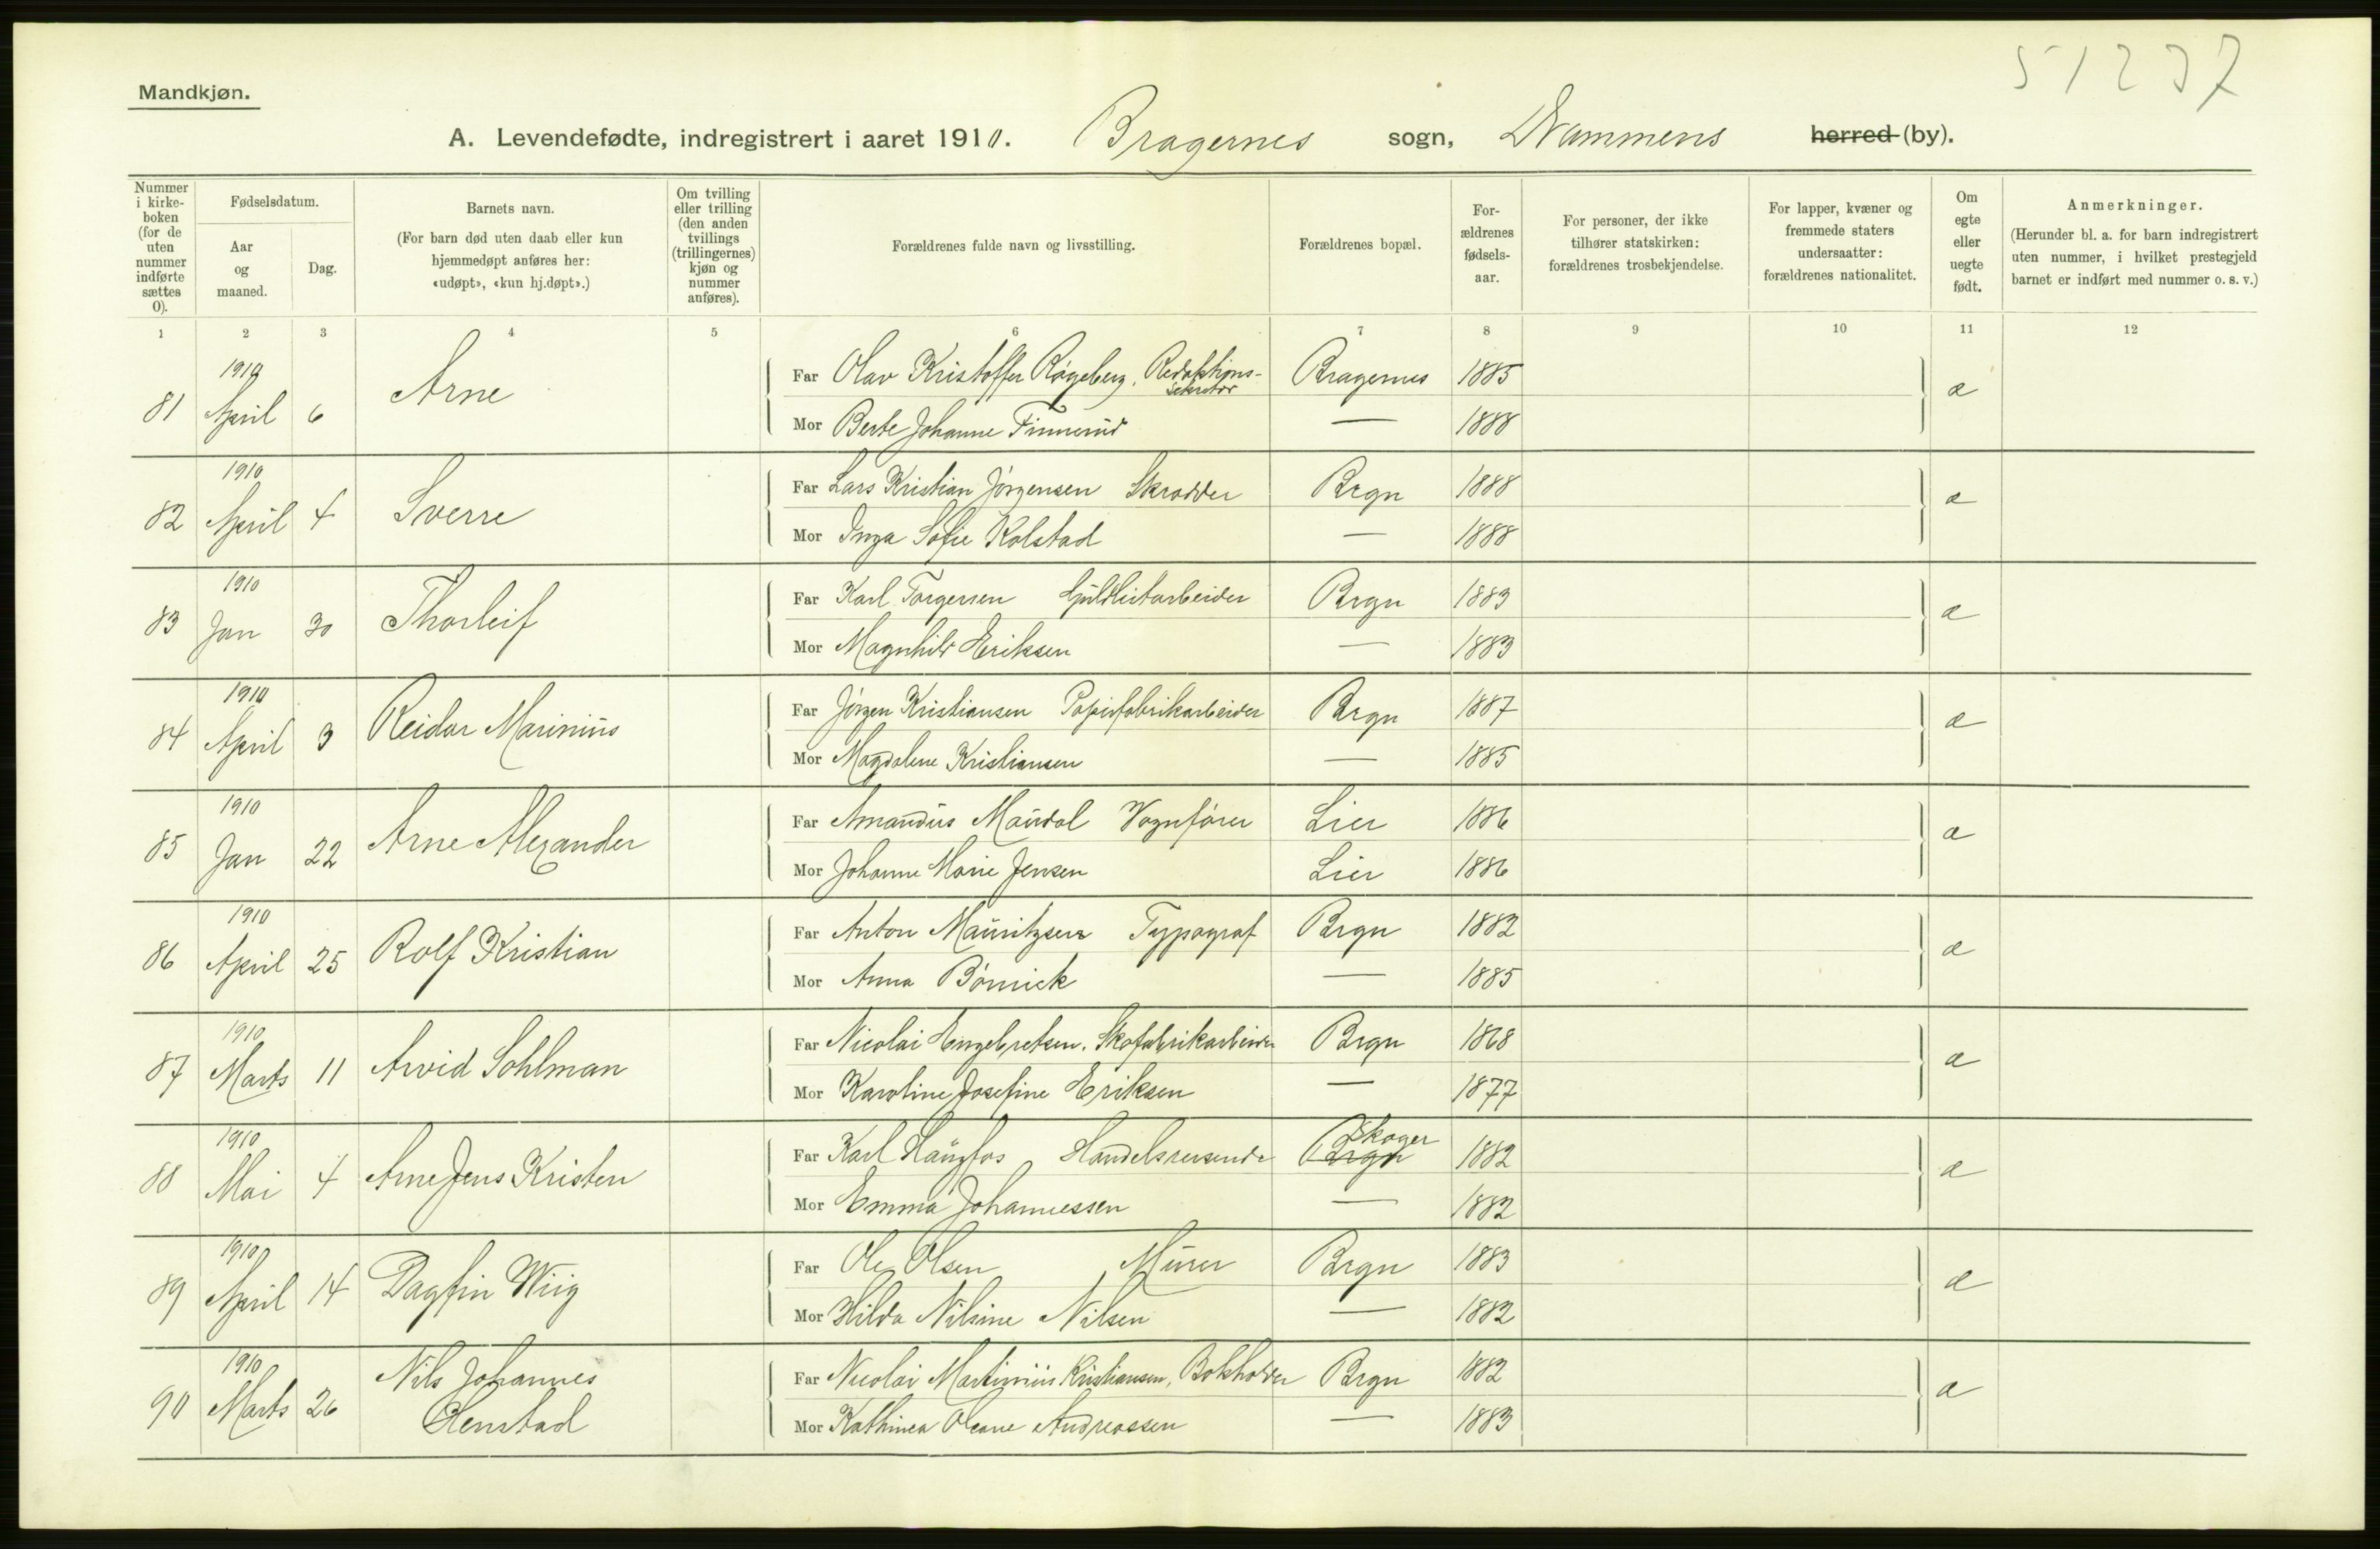 51237
Mandkjøn.
A. Levendefødte, indregistrert i aaret 1910. Bragernes sogn, Drammens herred (by).
Nummer i kirkeboken (for de uten nummer indførte sættes 0).
Fødselsdatum.
Aar og maaned.
Dag.
Barnets navn.
(For barn død uten daab eller kun hjemmedøpt anføres her: «udøpt», «kun hj.døpt».)
Om tvilling eller trilling (den anden tvillings (trillingernes) kjøn og nummer anføres).
Forældrenes fulde navn og livsstilling.
Forældrenes bopæl.
Forældrenes fødselsaar.
For personer, der ikke tilhører statskirken: forældrenes trosbekjendelse.
For lapper, kvæner og fremmede staters undersaatter: forældrenes nationalitet.
Om egte eller uegte født.
Anmerkninger.
(Herunder bl. a. for barn indregistrert uten nummer, i hvilket prestegjeld barnet er indført med nummer o. s. v.)
1 2 3 4 5 6 7 8 9 10 11 12
81 1910 April 6 Arne Far Olav Kristoffer Røgeberg, Redaktions-sekretær Bragernes 1885 æ
Mor Berte Johanne Finnerud — 1888
82 1910 April 4 Sverre Far Lars Kristian Jørgensen Skrædder Brgn 1888 æ
Mor Inga Sofie Kolstad — 1888
83 1910 Jan 30 Thorleif Far Karl Torgersen Guldlistarbeider Brgn 1883 æ
Mor Magnhild Eriksen — 1883
84 1910 April 3 Reidar Marinius Far Jørgen Kristiansen Papirfabrikarbeider Brgn 1887 æ
Mor Magdalene Kristiansen — 1885
85 1910 Jan 22 Arne Alexander Far Amandus Maurdal Vognfører Lier 1886 æ
Mor Johanne Marie Jensen Lier 1886
86 1910 April 25 Rolf Kristian Far Anton Mauritzsen Typograf Brgn 1882 æ
Mor Anna Børnick — 1885
87 1910 Marts 11 Arvid Sohlman Far Nicolai Engebretsen. Skofabrikarbeider Brgn 1868 æ
Mor Karoline Josefine Eriksen — 1877
88 1910 Mai 4 Arne Jens Kristen Far Karl Haugfos Handelsreisende Brgn Skoger 1882 æ
Mor Emma Johannessen — 1882
89 1910 April 14 Dagfin Wiig Far Ole Olsen, Murer Brgn 1883 æ
Mor Hilda Nilsine Nilsen — 1882
90 1910 Marts 26 Nils Johannes Olenstad Far Nicolai Martinius Kristiansen, Bokholder Brgn 1882 æ
Mor Kathinca Oleane Andreassen — 1883